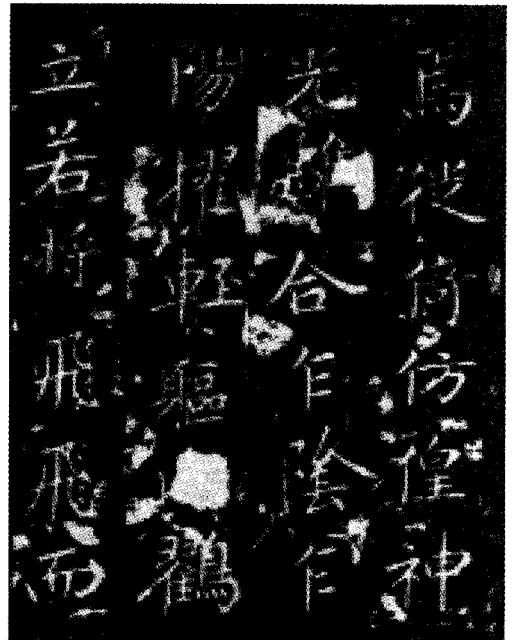 焉徙倚仿徨神
光離合乍陰乍
陽擢輕軀鶴
立若將飛飛而